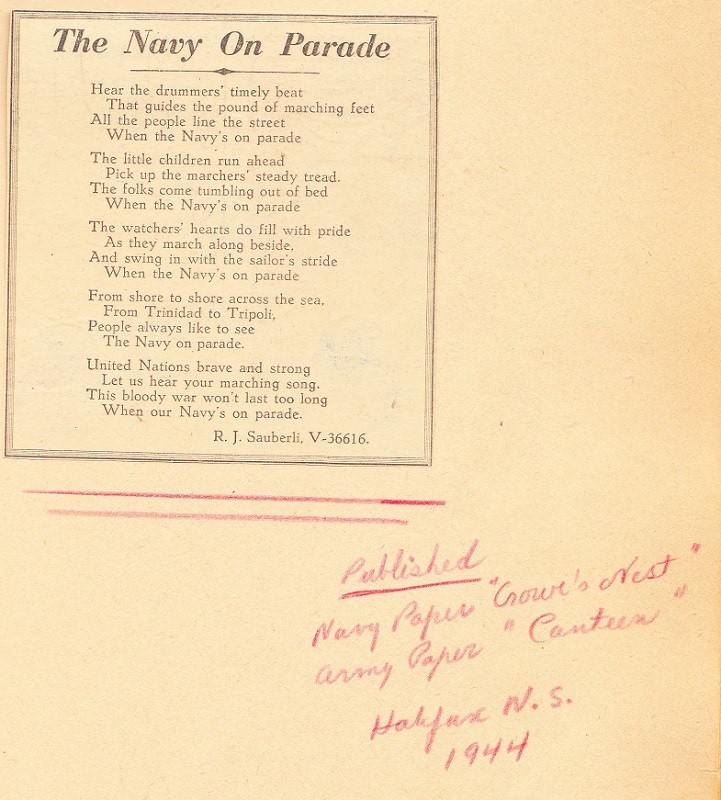 The Navy On Parade
Hear the drummers' timely beat
That guides the pound of marching feet
All the people line the street
When the Navy's on parade
The little children run ahead
Pick up the marchers' steady tread.
The folks come tumbling out of bed
When the Navy's on parade
The watchers' hearts do fill with pride
As they march along beside,
And swing in with the sailor's stride
When the Navy's on parade
From shore to shore across the sea,
From Trinidad to Tripoli,
People always like to see
The Navy on parade.
United Nations brave and strong
Let us hear your marching song.
This bloody war won't last too long
When our Navy's on parade.
R. J. Sauberli, V-36616.
Published
Navy Paper "Crowe's Nest"
Army Paper "Canteen"
Halifax N. S.
1944